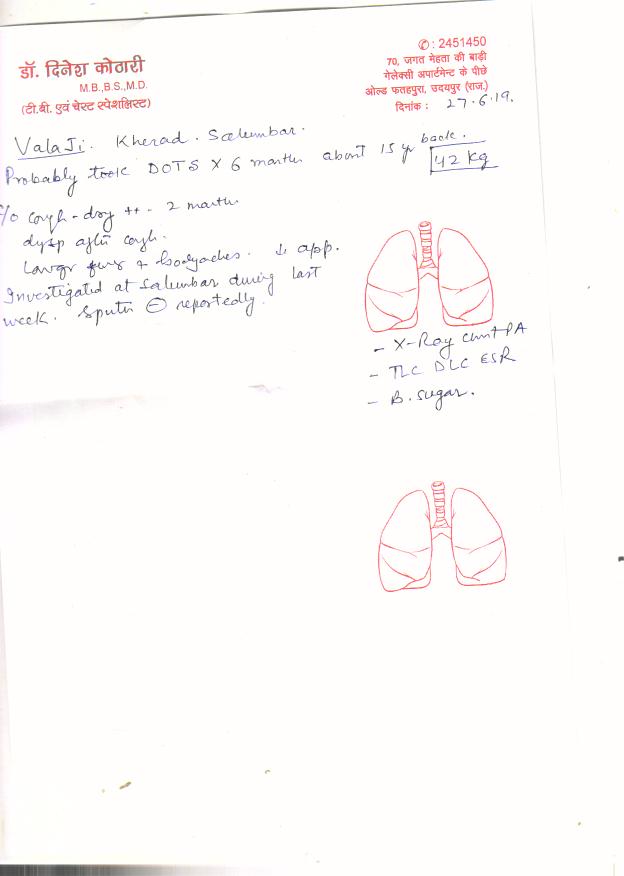 डॉ. दिनेश कोठारी
M.B.,B.S.,M.D.
(टी.बी. एवं चेस्ट स्पेशलिस्ट)
✆ : 2451450
70, जगत मेहता की बाड़ी
गेलेक्सी अपार्टमेन्ट के पीछे
ओल्ड फतहपुरा, उदयपुर (राज.)
दिनांक : 27.6.19.
ValaJi. Kherad. Salumbar.
Probably took DOTS X 6 months about 15 yr back.
42 kg
c/o cough - dry ++ - 2 months
dysp after cough.
fever + bodyaches. ↓ app.
Investigated at Salumbar during last
week. Sputum ⊖ reportedly.
- X-Ray chest PA
- TLC DLC ESR
- B. sugar.